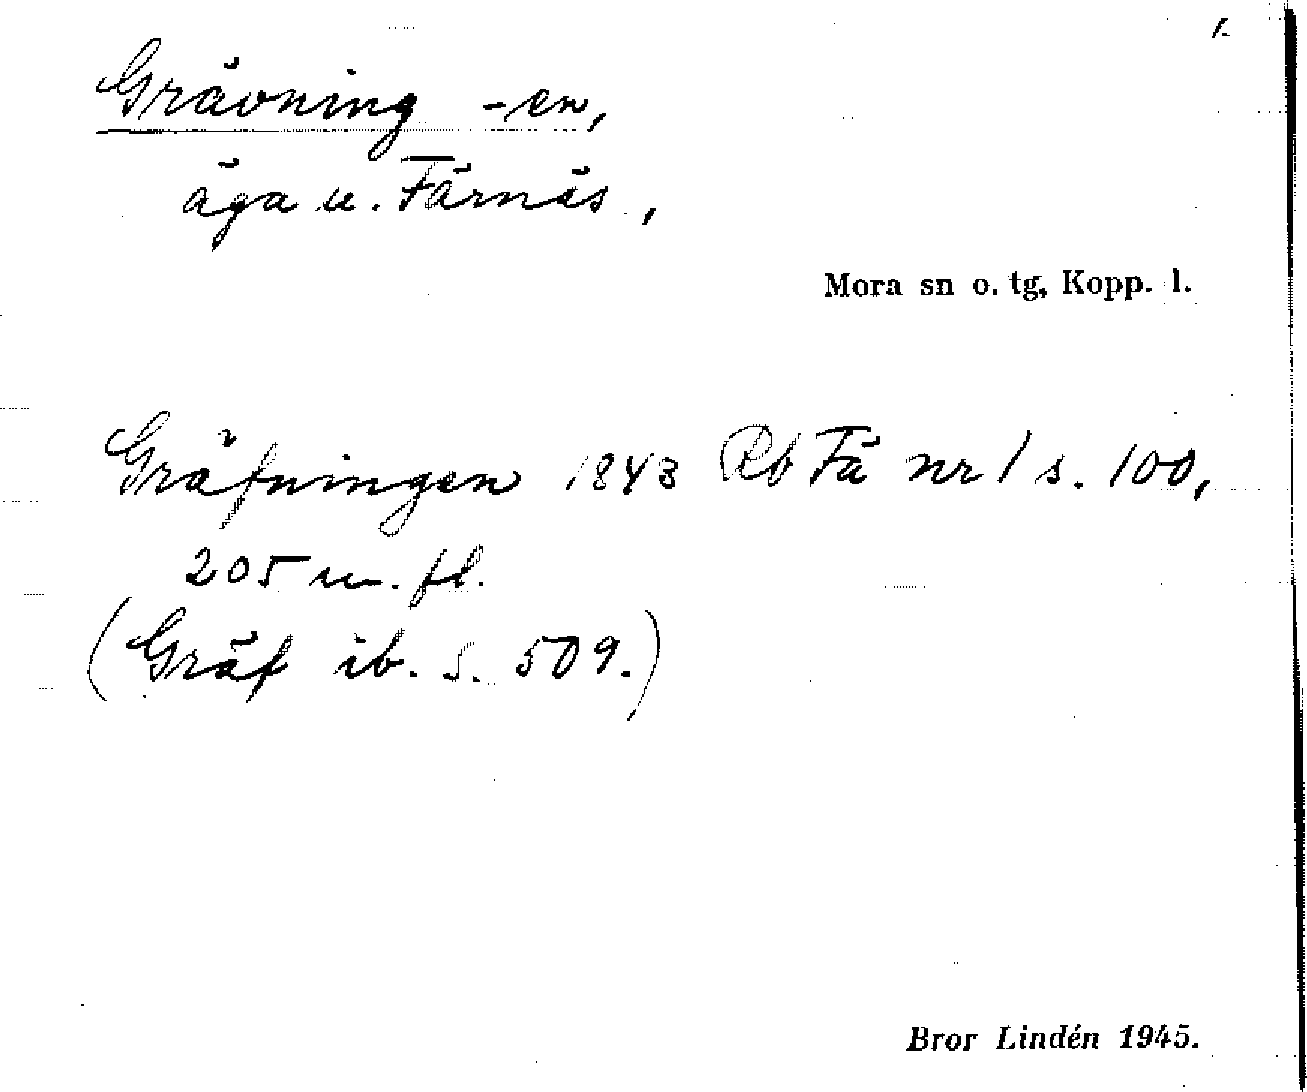 1.
Grävning -en,
äga u. Färnäs,
Mora sn o. tg, Kopp. l.
Gräfningen 1843 Rb Fä nr 1 s. 100,
205 m. fl.
(Gräf ib. s. 509.)
Bror Lindén 1945.